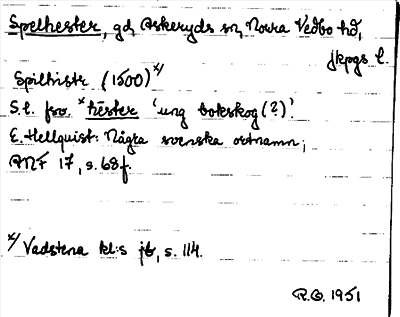 Spelhester, gd, Askeryds sn, Norra Vedbo hd,
Jkpgs l.
Spilhistr (1500) x/
S.l. fsv. *hēster 'ung bokskog(?)'.
E. Hellquist: Några svenska ortnamn;
ANF 17, s. 68 f.
x/ Vadstena kl:s jb, s. 114.
R.O. 1951